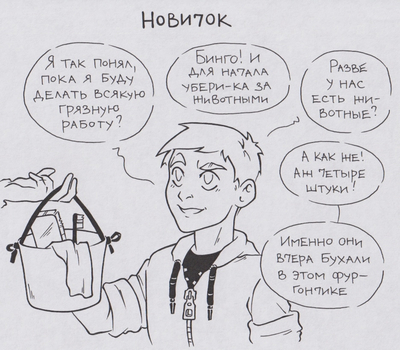 НОВИЧОК
Я ТАК ПОНЯЛ,
ПОКА Я БУДУ
ДЕЛАТЬ ВСЯКУЮ
ГРЯЗНУЮ
РАБОТУ?
БИНГО! И
ДЛЯ НАЧАЛА
УБЕРИ-КА ЗА
ЖИВОТНЫМИ
РАЗВЕ
У НАС
ЕСТЬ ЖИ-
ВОТНЫЕ?
А КАК ЖЕ!
АЖ ЧЕТЫРЕ
ШТУКИ!
ИМЕННО ОНИ
ВЧЕРА БУХАЛИ
В ЭТОМ ФУР-
ГОНЧИКЕ